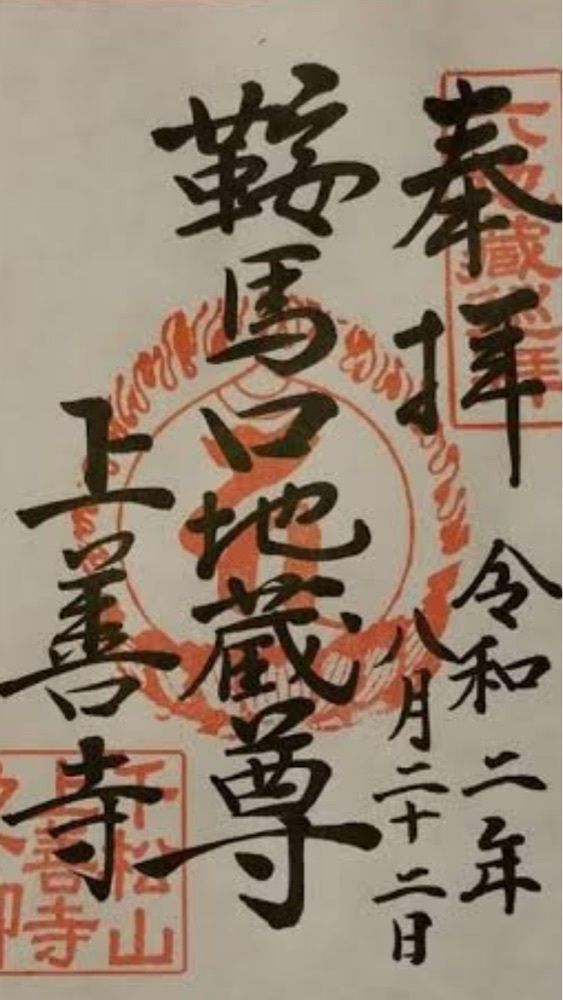 奉拝
六地蔵巡拝
令和二年
八月二十二日
鞍馬口地蔵尊
上善寺
千松山
上善寺